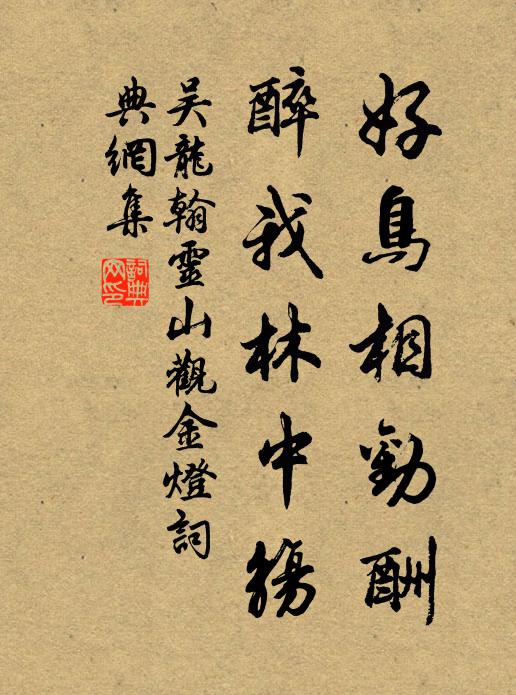 好鳥相勸酬
醉我林中觴
吴龍翰靈山觀金燈詞
典網集
詞典
网印